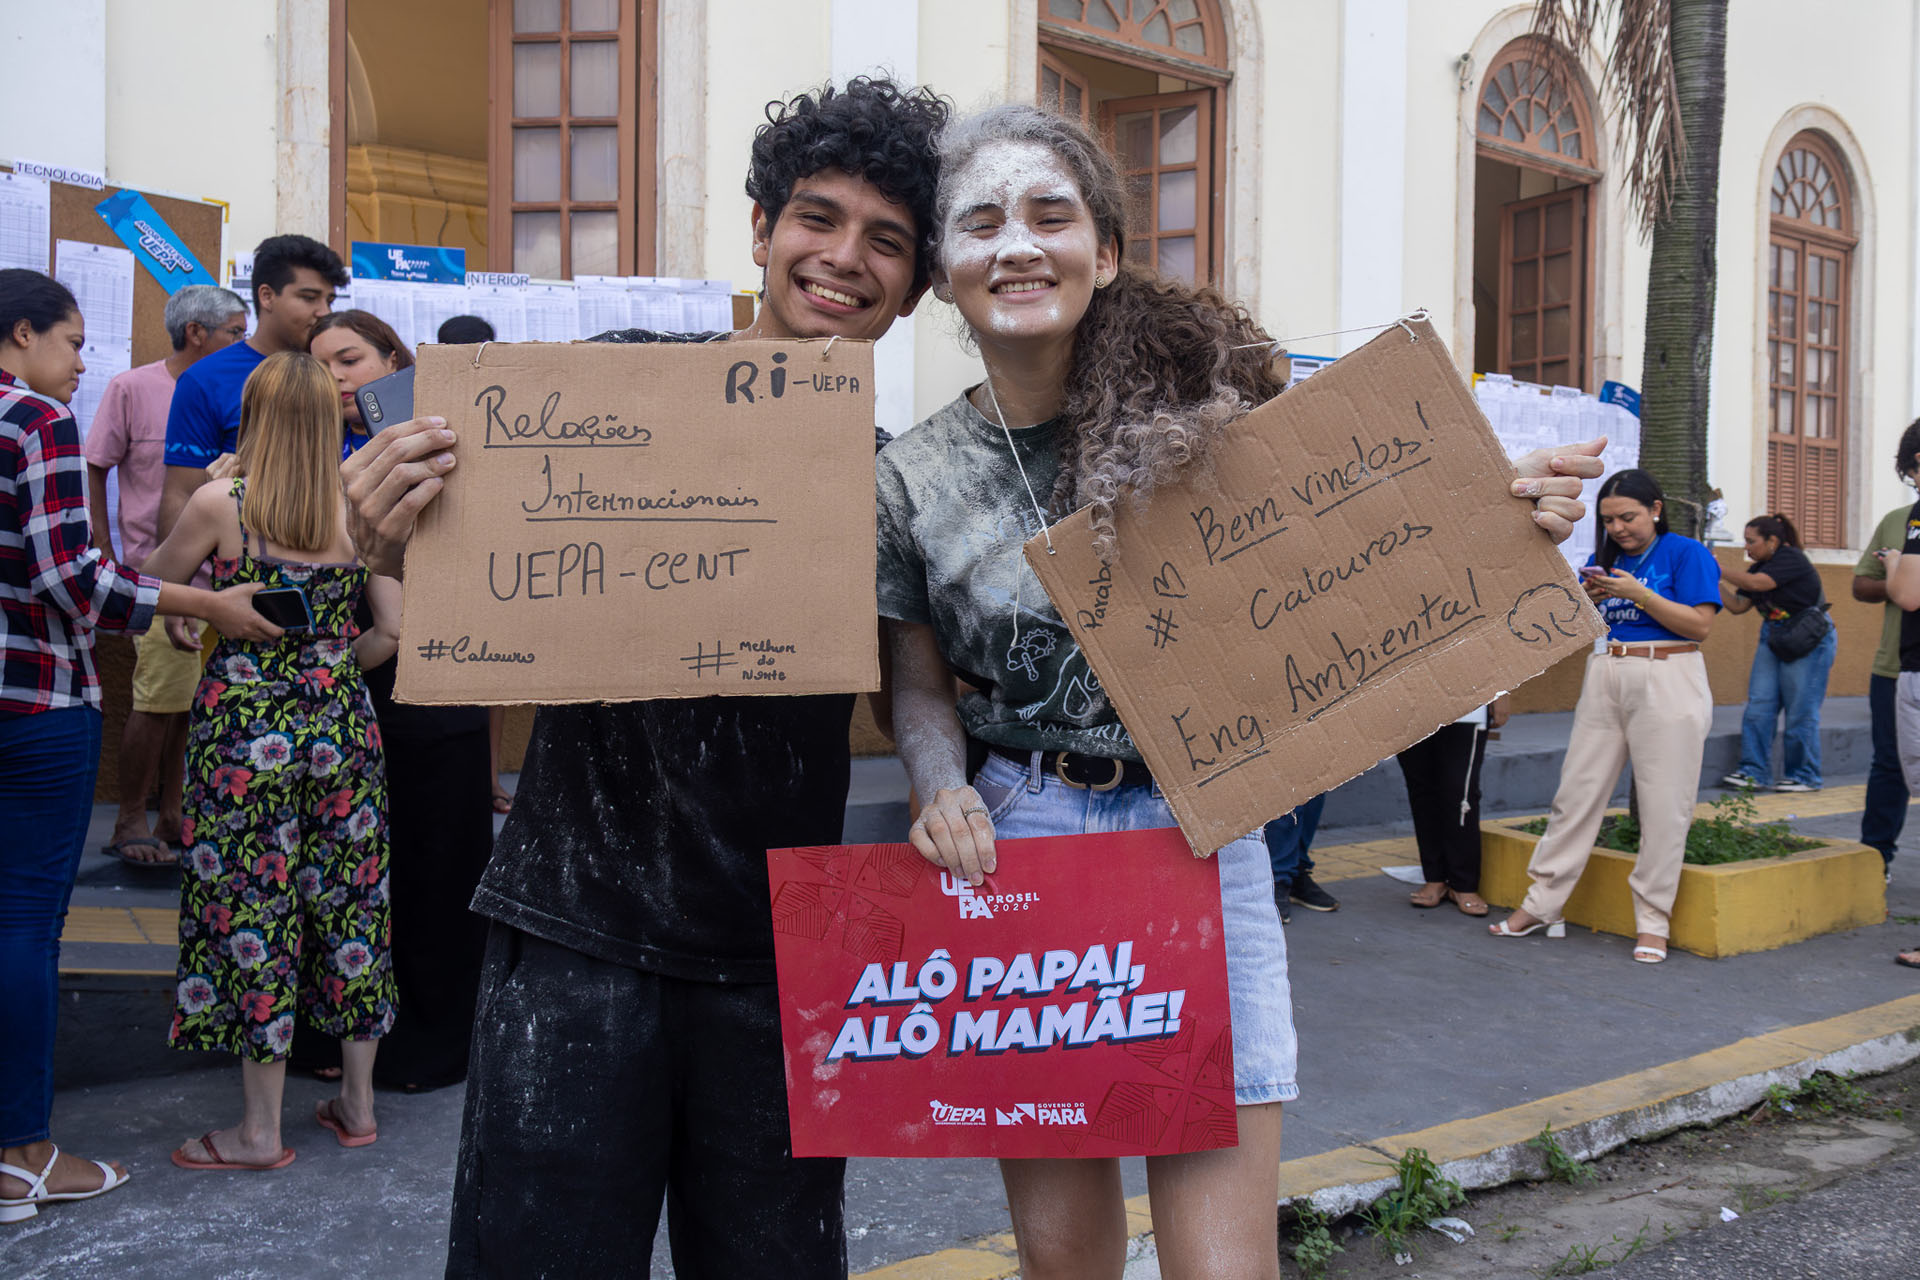 TECNOLOGIA
UEPA
INTERIOR
R.i - UEPA
Relações
Internacionais
UEPA - CCNT
#Calouro
# Melhor
do
Norte
Bem vindos!
Calouros
Eng. Ambiental
UE
PA PROSEL
2026
ALÔ PAPAI,
ALÔ MAMÃE!
UEPA
GOVERNO DO
PARÁ